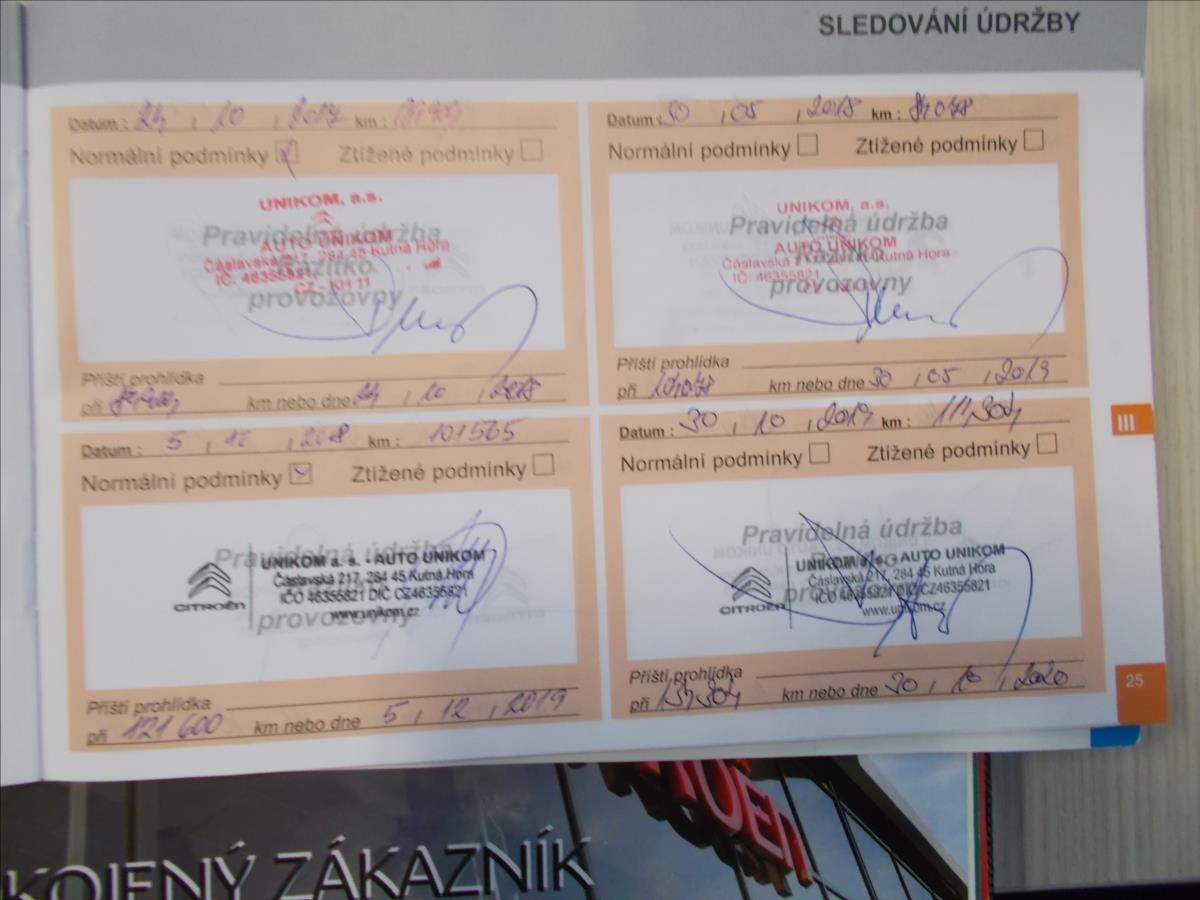 SLEDOVÁNÍ ÚDRŽBY
Datum : 24 , 10 , 2017 km :
Normálni podmínky Ztížené podmínky
UNIKOM, a.s.
Pravidelná údržba
AUTO UNIKOM
Čáslavská 217, 284 45 Kutná Hora
Razítko
IČ: 46355821
CZ - KH 11
provozovny
Příští prohlídka
při km nebo dne 24 , 10 , 2018
Datum : 30 , 05 , 2018 km :
Normálni podmínky Ztížené podmínky
UNIKOM, a.s.
Pravidelná údržba
AUTO UNIKOM
Razítko
Čáslavská Kutná Hora
IČ: 46355821
provozovny
Příští prohlídka
při km nebo dne 30 , 05 , 2019
Datum : 5 , 12 , 2018 km : 101565
Normálni podmínky Ztížené podmínky
Pravidelná údržba
UNIKOM a. s. - AUTO UNIKOM
Čáslavská 217, 284 45 Kutná Hora
IČO 46355821 DIČ CZ46355821
www.unikom.cz
CITROËN
provozovny
Příští prohlídka
při 121 600 km nebo dne 5 , 12 , 2019
Datum : 30 , 10 , 2019 km : 111,304
Normálni podmínky Ztížené podmínky
Pravidelná údržba
UNIKOM a. s. - AUTO UNIKOM
Čáslavská 217, 284 45 Kutná Hora
IČO 46355821 DIČ CZ46355821
www.unikom.cz
CITROËN
provozovny
Příští prohlídka
při km nebo dne 30 , 10 , 2020
III
25
KOJENÝ ZÁKAZNÍK